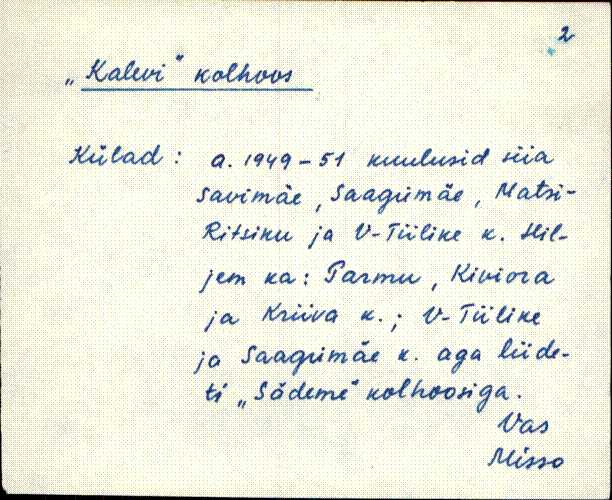 2
„Kalevi" kolhoos
Külad: a. 1949-51 kuulusid siia
Savimäe, Saagrimäe, Matsi-
Ritsiku ja V-Tiilike k. Hil-
jem ka: Parmu, Kiviora
ja Kriiva k.; V-Tiilike
ja Saagrimäe k. aga liide-
ti „Sädeme" kolhoosiga.
Vas
Misso